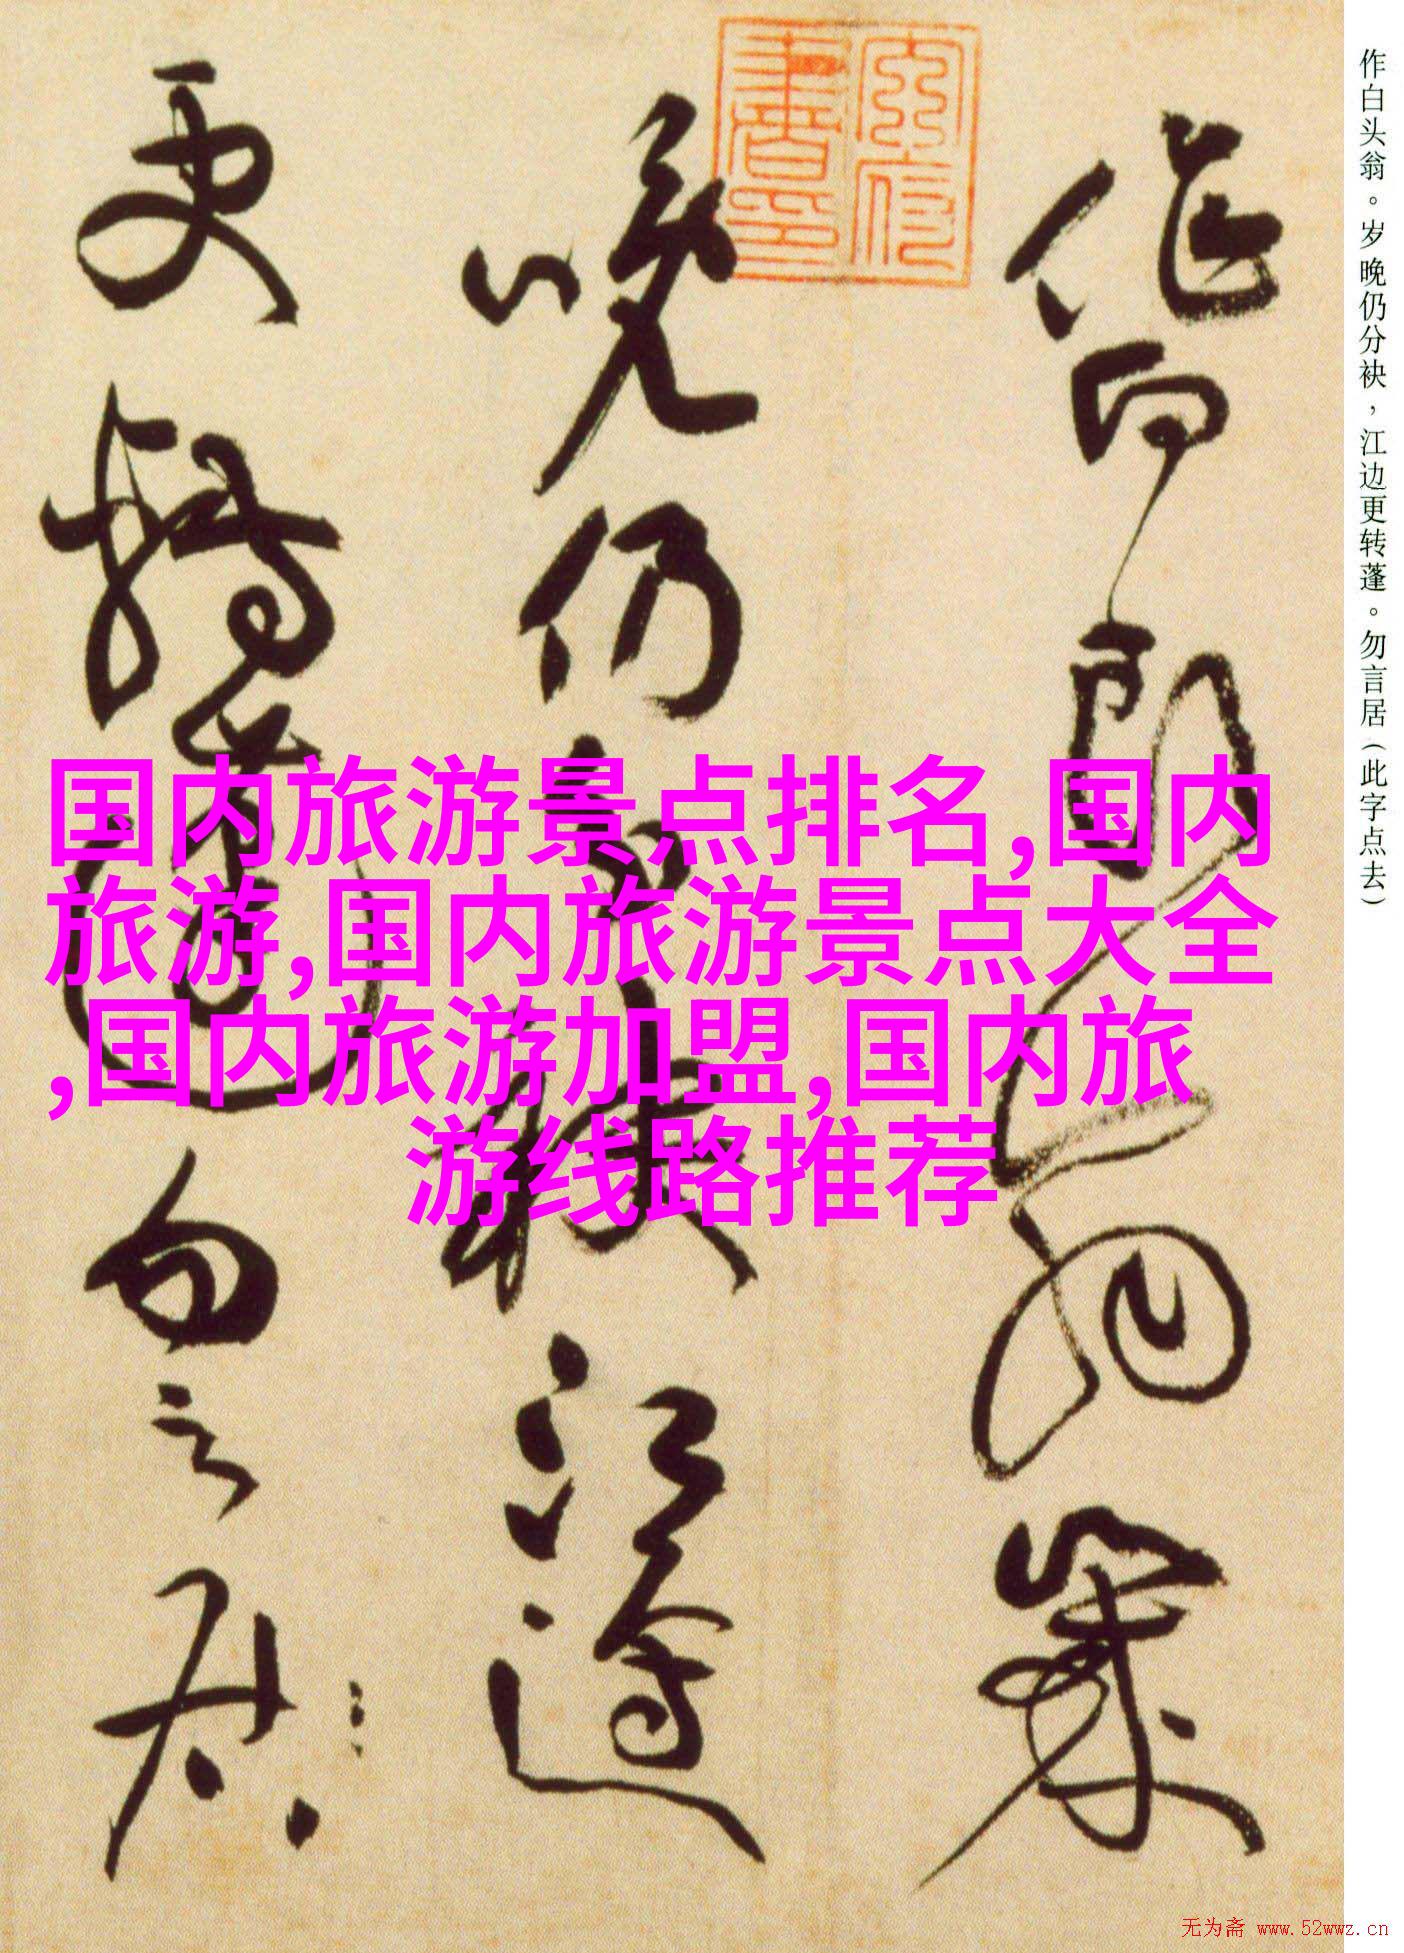 作白頭翁歲
晚仍分袂江邊
更轉蓬勿言居
作白头翁。岁晚仍分袂，江边更转蓬。勿言居(此字点去)
国内旅游景点排名,国内
旅游,国内旅游景点大全
,国内旅游加盟,国内旅
游线路推荐
无为斋 www.52wwz.cn